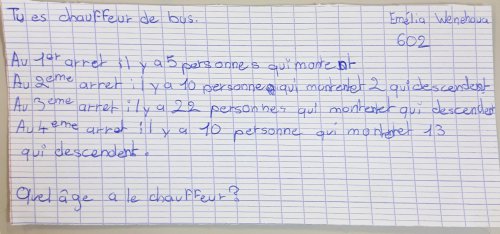 Tu es chauffeur de bus.
Emélia Wenehoua
602
Au 1er arret il y a 5 personnes qui montent
Au 2eme arret il y a 10 personnes qui montentet 2 qui descendent
Au 3eme arret il y a 22 personnes qui montentet qui descendent
Au 4eme arret il y a 10 personne qui montentet 13
qui descendent.
Quel âge a le chauffeur?